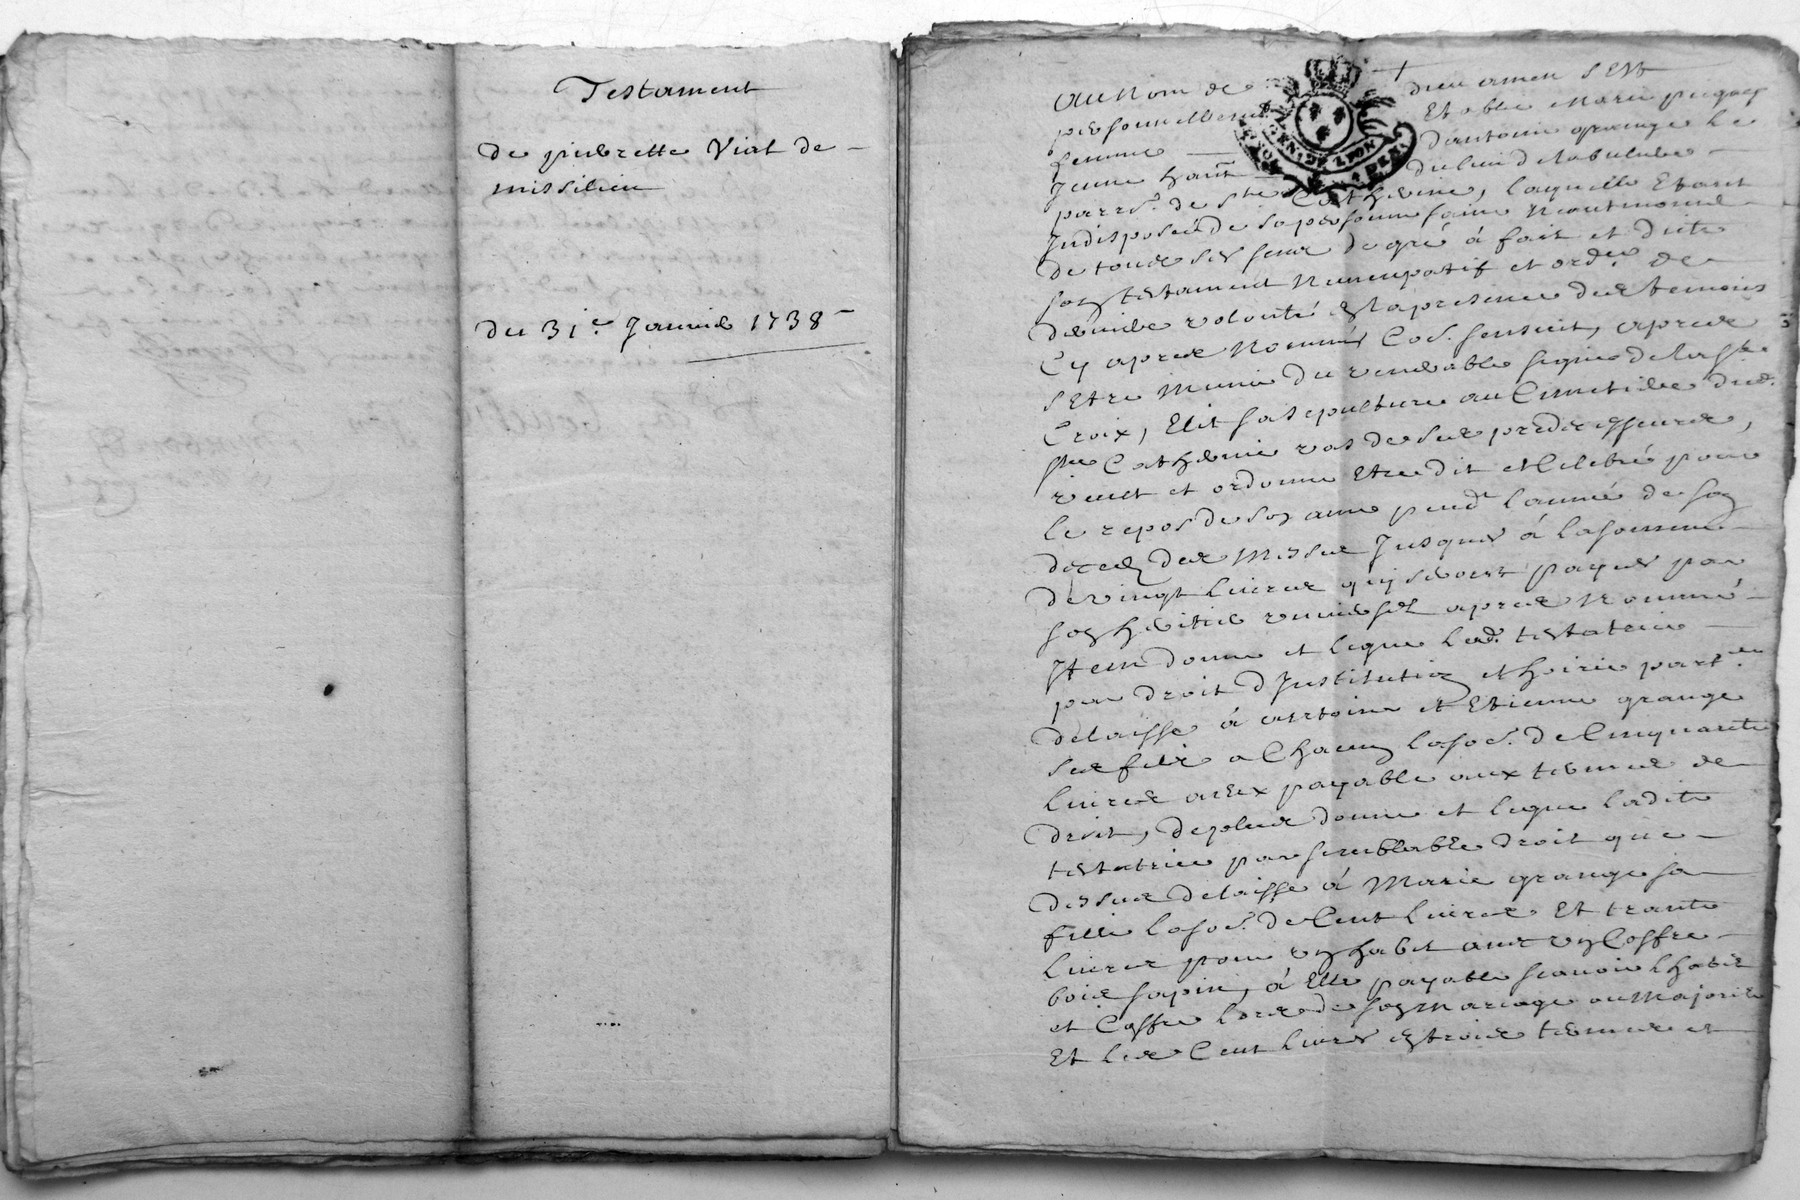 Testament
de pierrette Viat de
missilieu
du 31.e Janvier 1738
Au Nom de dieu amen s'Est
personnellement Etablie Marie
femme d'antoine grange le
Jeune habitant du lieu de
parrse. de Ste Catherine, laquelle Etant
Indisposée de sa personne saine Neantmoins
de tous ses sens de gré à fait et dicté
son testament Nuncupatif et ordre. de
derniere volonté En la presence des temoins
Cy apres Nommés Co.e sensuit, apres
s'Etre Munie du venerable signe de la Ste
Croix, Elit sa sepulture au Cimetiere dud.
Ste Catherine vas de ses predecesseurs,
veut et ordonne Etre dit et Celebré pour
le repos de son ame pendt. l'année de son
deced des Messes Jusques à la somme
de vingt livres quy seront payés par
son heritier universel apres Nommé
Item donne et legue lad. testatrice
par droit d'Institution et hoirie partre.
delaisse à antoine et Etienne grange
ses fils a Chacun la so.e de Cinquante
livres a Eux payable aux termes de
droit, de plus donne et legue ladite
testatrice par semblable droit que
dessus delaisse à Marie grange sa
fille la so.e de Cent livres Et trante
livres pour un habit avec un Coffre
bois sapin, à Elle payable scavoir l'habit
et Coffre lors de son Mariage ou Majorité
Et les Cent livres en trois termes et
GEN. DE LYON